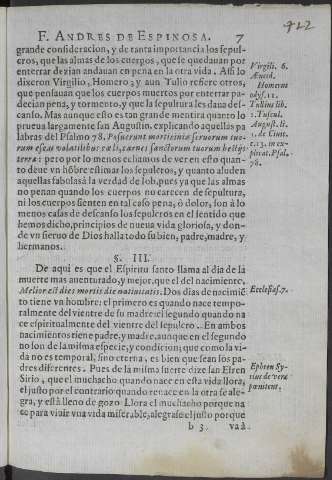 722
F. ANDRES DE ESPINOSA. 7
grande consideracion, y de tanta importancia los sepul-
cros, que las almas de los cuerpos, que se quedauan por
enterrar dezian andauan en pena en la otra vida. Assi lo
dixeron Virgilio, Homero; y aun Tulio refiere otros,
que pensauan que los cuerpos muertos por enterrar pa-
decian pena, y tormento, y que la sepultura les daua des-
canso. Mas aunque esto es tan grande mentira quanto lo
prueua largamente san Augustin, explicando aquellas pa
labras del Psalmo 78. Posuerunt morticinia seruorum tuo-
rum escas volatilibus cæli, carnes sanctorum tuorum bestijs
terræ: pero por lo menos echamos de ver en esto quan-
to deue vn hõbre estimar los sepulcros, y quanto aluden
aquellas fabulas à la verdad de los, pues ya que las almas
no penan quando los cuerpos no carecen de sepultura,
ni los cuerpos sienten en tal caso pena, ò dolor, son à lo
menos casas de descanso los sepulcros en el sentido que
hemos dicho, principios de nueua vida gloriosa, y don-
de vn sieruo de Dios halla todo su bien, padre, madre, y
hermanos.
§. III.
De aqui es que el Espiritu santo llama al dia de la
muerte mas auenturado, y mejor, que el del nacimiento,
Melior est dies mortis die natiuitatis. Dos dias de nacimiẽ
to tiene vn hombre: el primero es quando nace tempo-
ralmente del vientre de su madre: el segundo quando na
ce espiritualmente del vientre del sepulcro. En ambos
nacimientos tiene padre, y madre, aunque en el segundo
no son de la misma especie, y condicion; que como la vi-
da no es temporal, sino eterna, es bien que sean los pa-
dres diferentes. Pues de la misma suerte dize san Efren
Sirio, que el muchacho quando nace en esta vida llora,
el justo por el contrario quando renace en la otra se ale-
gra, y està lleno de gozo. Llora el muchacho porque na
ce para viuir vna vida miserable, alegrase el justo porque
b 3. va à
Virgili. 6.
Æneid.
Homerus
odyss. 11.
Tullius lib.
1. Tuscul.
August. li.
1. de Ciuit.
c. 13. in ex-
plicat. Psal.
78.
Ecclesias. 7.
Ephren Sy-
rius de vera
pœnitent.